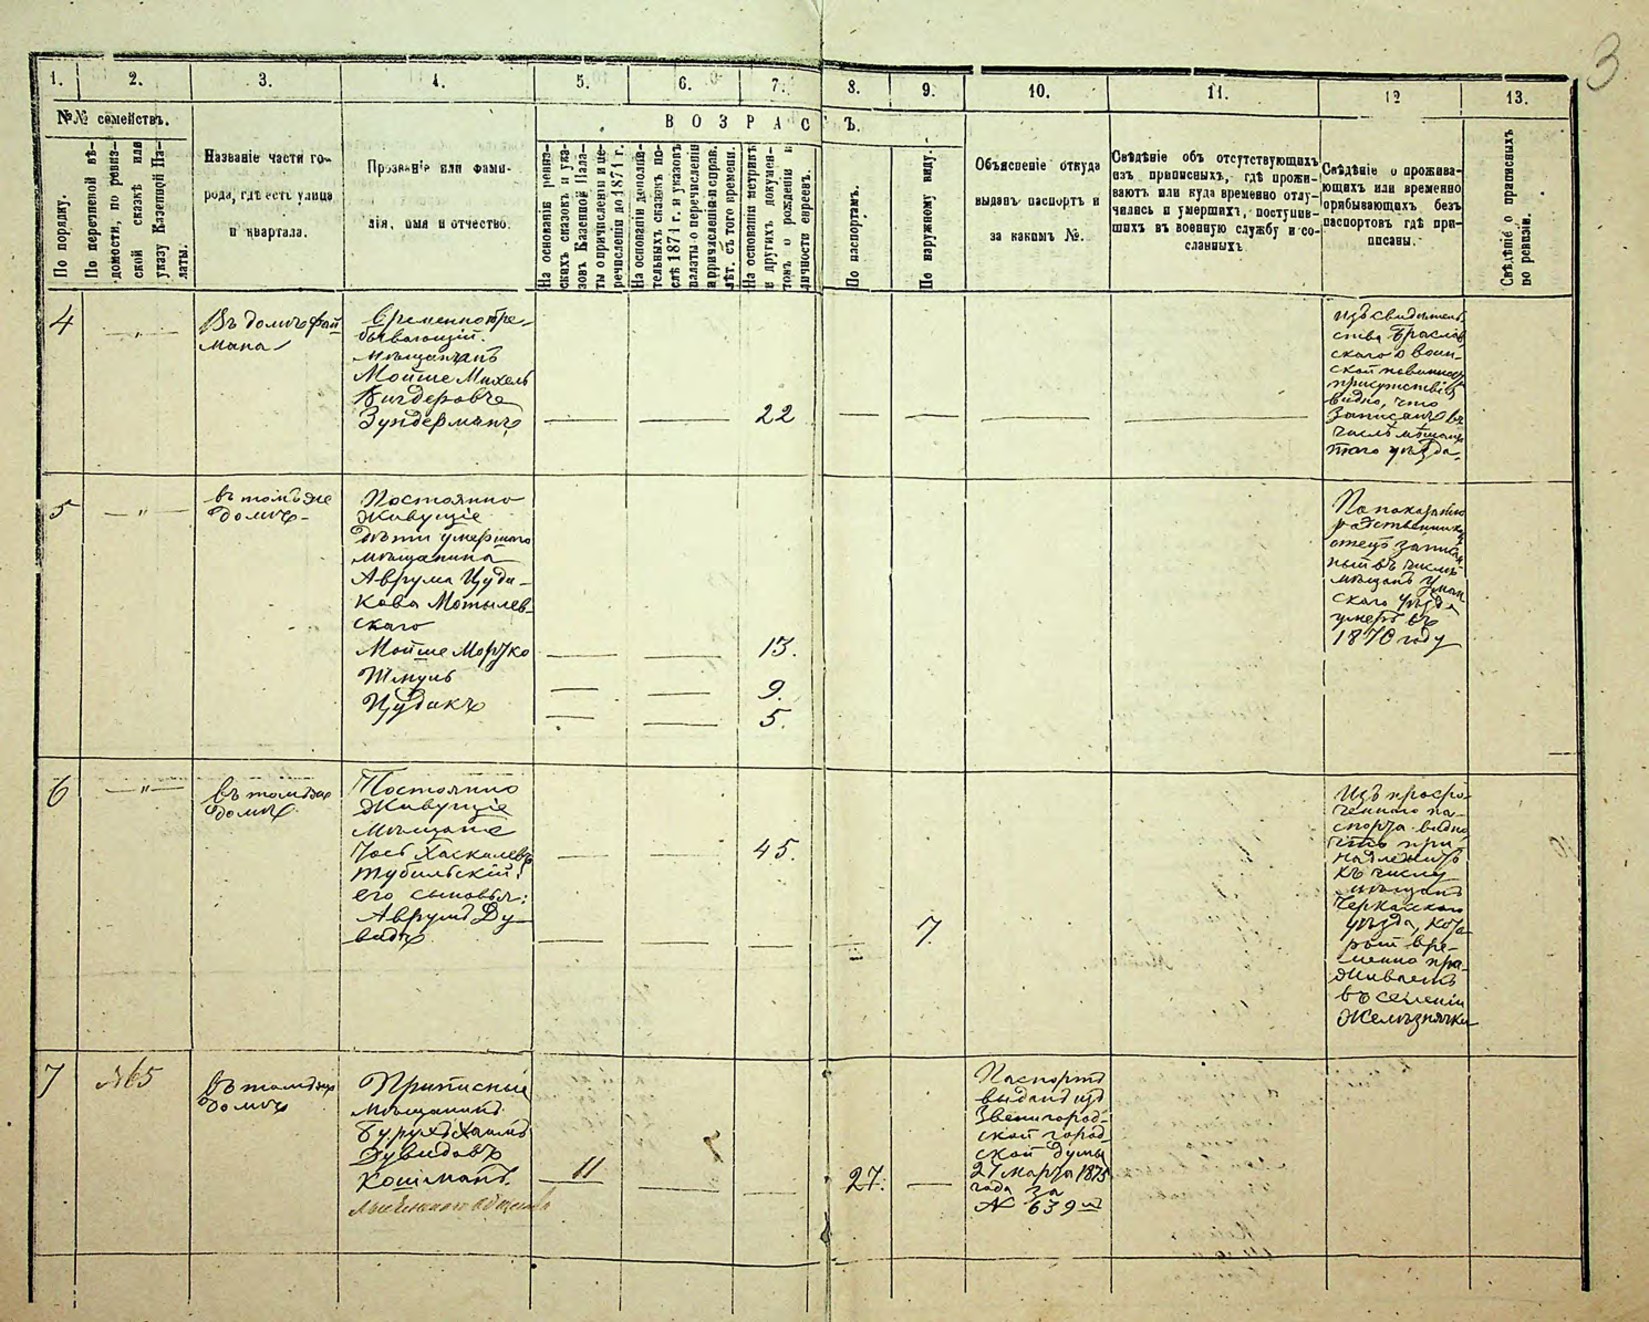 3
1. 2. 3. 4. 5. 6. 7. 8. 9. 10. 11. 12 13.
№№ семействъ.
По порядку.
По перечневой вѣ-
домости, по ревиз-
ской сказкѣ или
указу Казенной Па-
латы.
Названіе части го-
рода, гдѣ есть улица
и квартала.
Прозваніе или фами-
лія, имя и отчество.
ВОЗРАСТЪ.
На основаніи ревиз-
скихъ сказокъ и ука-
зовъ Казенной Пала-
ты о причисленіи и пе-
речисленіи до 1871 г.
На основаніи дополни-
тельныхъ сказокъ по-
слѣ 1871 г. и указовъ
палаты о перечисленіи
и причисленіи и справ.
лѣт. съ того времени.
На основаніи метрикъ
и другихъ докумен-
товъ о рожденіи и
личности евреевъ.
По паспортамъ.
По наружному виду.
Объясненіе откуда
выданъ паспортъ и
за какимъ №.
Свѣдѣніе объ отсутствующихъ
изъ приписныхъ, гдѣ прожи-
ваютъ или куда временно отлу-
чились и умершихъ, поступив-
шихъ въ военную службу и со-
сланныхъ.
Свѣдѣніе о прожива-
ющихъ или временно
прибывающихъ безъ
паспортовъ гдѣ при-
писаны.
Свѣдѣніе о приписныхъ
по ревизіи.
4
— " —
Въ домѣ Фай
мана
Временно пре-
бывающій.
мѣщанинъ
Мойше Михель
Вигдеровъ
Зундерманъ
— — 22 — — — —
изъ свидѣтель
ства Браслав
скаго о воин-
ской повинносу
присутствія
видно, что
записанъ въ
числѣ мѣщанъ
того уѣзда.
5
— " —
въ томъ же
домѣ
Постоянно
живущіе
дѣти умершаго
мѣщанина
Аврума Цуди-
кова Мотылев-
скаго
Мойше Моружо
— — 13.
Шмуль
— — 9.
Цудикъ
— — 5.
По показанію
родственников
отецъ записан
ный въ числѣ
мѣщанъ Уман
скаго уѣзда
умеръ въ
1870 году
6
— " —
въ томъ же
домѣ
Постоянно
живущіе
мѣщане
Іось Хаскилевъ
Тубильскій,
— — 45.
его сыновья:
Аврумъ Ду-
видъ
— — — — 7.
Изъ просро-
ченнаго па-
спорта видно
что при-
надлежитъ
къ числу
мѣщанъ
Черкаскаго
уѣзда, кото
рый вре-
менно про-
живаетъ
въ селеніи
Желѣзнячки
7
№65
въ томъ же
домѣ
Приписные
мѣщанинъ
Бурухъ Хаимъ
Дувидовъ
Кошманъ.
11 — — 27. —
Паспортъ
выданъ изъ
Звенигород-
ской город-
ской думы
27 марта 1875
года за
№ 639 м